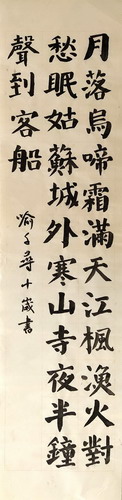 月落烏啼霜滿天江楓漁火對
愁眠姑蘇城外寒山寺夜半鐘
聲到客船
喻子尋十歲書